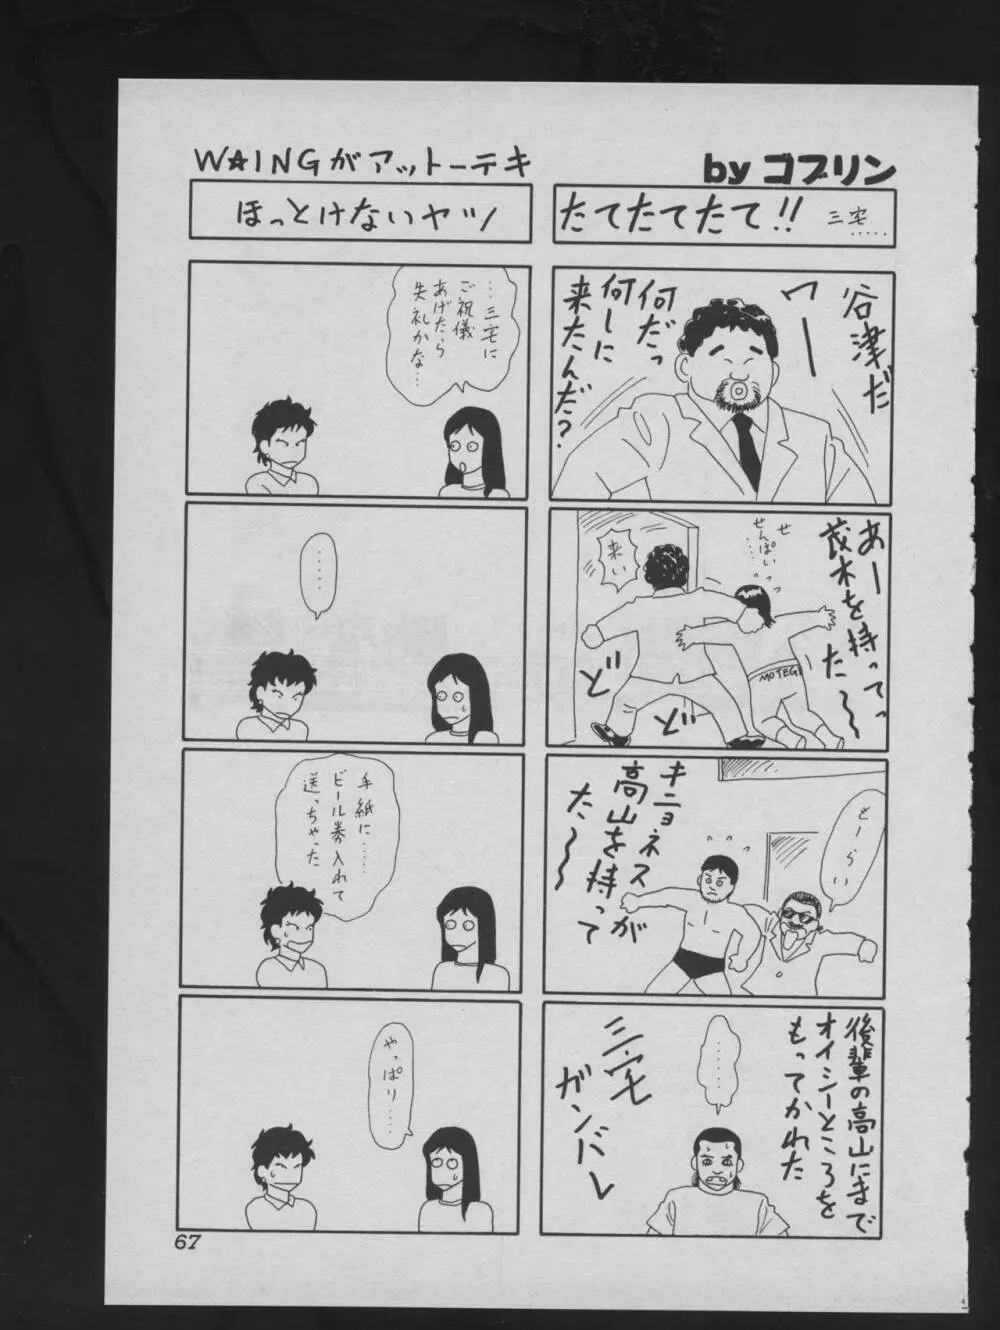 W★INGがアットーテキ
by ゴブリン
たてたてたて!! 三宅.....
谷津だ
ワー
何だっ
何しに
来たんだ?
あー
茂木を持ってっ
た〜〜
せ
せんぱいっっ
....
来い
MOTEGI
ドド
キニョネスが
高山を持って
た〜〜
どーらい
後輩の高山にまで
オイシーところを
もってかれた
......
三宅
ガンバレ
ほっとけないヤツ
...三宅に
ご祝儀
あげたら
失礼かな...
.....
手紙に.....
ビール券入れて
送っちゃった
やっぱり...
67